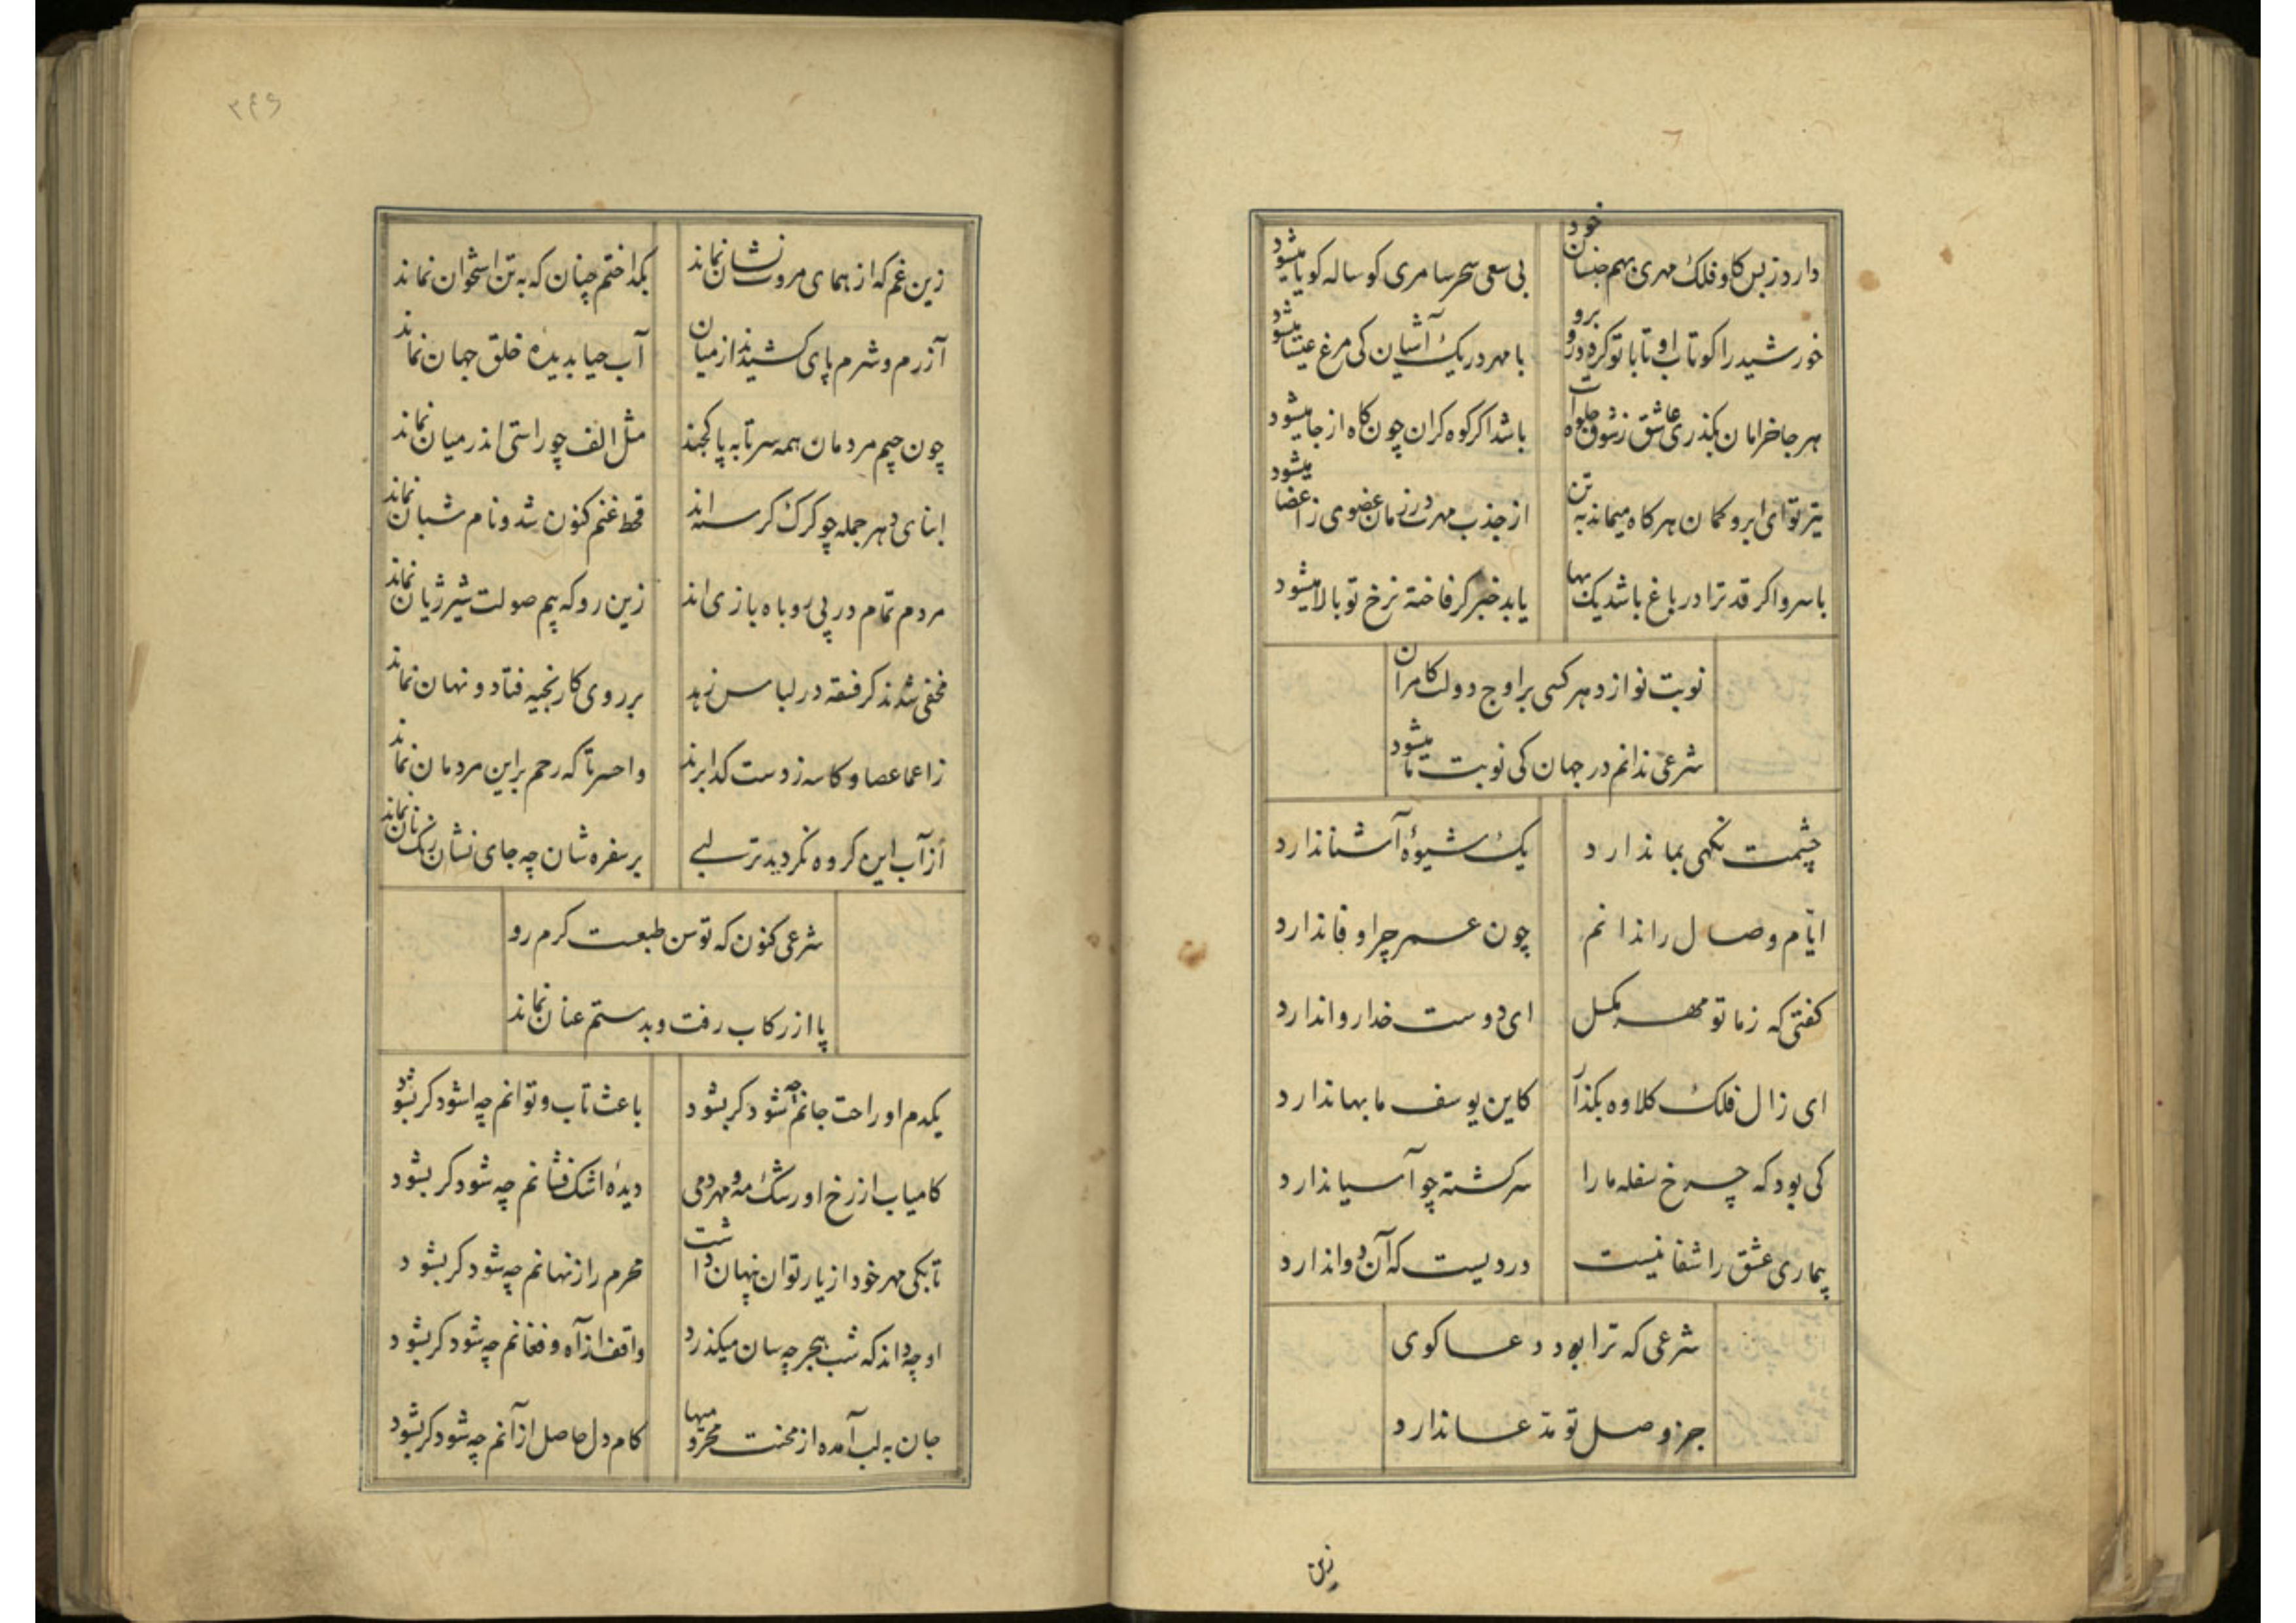 دارد ز بس کاو فلک مهری بهم جنسان خود
بی سعی سحر سامری کوساله کویا میشود
خورشید را کو تاب او تا با تو کردد روبرو
با مهر در یک آشیان کی مرغ عیسا میشود
هر جا خرامان بکذری عاشق ز شوق جلوه‌ات
باشد اکر کوه کران چون کاه از جا میشود
تیر تو ای ابرو کمان هر کاه میماند به تن
از جذب مهرت در زمان عضوی ز اعضا میشود
با سرو اکر قد ترا در باغ باشد یک بها
یابد خبر کر فاخته نرخ تو بالا میشود
نوبت نوازد هر کسی بر اوج دولت کامران
شرعی ندانم در جهان کی نوبت ما میشود
چشمت نکهی بما ندارد
یک شیوهٔ آشنا ندارد
ایّام وصال را ندانم
چون عمر چرا وفا ندارد
کفتی که ز ما تو مهر بکسل
ای دوست خدا روا ندارد
ای زال فلک کلاوه بکذار
کاین یوسف ما بها ندارد
کی بود که چرخ سفله ما را
سرکشته چو آسیا ندارد
بیماری عشق را شفا نیست
دردیست که آن دوا ندارد
شرعی که ترا بود دعا کوی
جز وصل تو مدّعا ندارد
زین
۳۴۶
زین غم که از همای مروت نشان نماند
بکداختم چنان که به تن استخوان نماند
آزرم و شرم پای کشیدند از میان
آب حیا بدیدهٔ خلق جهان نماند
چون جیم مردمان همه سر تا به پا کجند
مثل الف چو راستی اندر میان نماند
ابنای دهر جمله چو کرک کرسنه اند
قحط غنم کنون شد و نام شبان نماند
مردم تمام در پی روباه بازی اند
زین رو که بیم صولت شیر ژیان نماند
مخفی شدند کر فسقه در لباس زهد
بر روی کار بخیه فتاد و نهان نماند
ز اعما عصا و کاسه ز دست کدا برند
واحسرتا که رحم براین مردمان نماند
از آب این کروه نکردید تر لبی
بر سفره شان چه جای نشان رنک نان نماند
شرعی کنون که توسن طبعست کرم رو
پا از رکاب رفت و بدستم عنان نماند
یکدم او راحت جانم چه شود کر بشود
باعث تاب و توانم چه شود کر بشود
کامیاب از رخ او رشک مه و مهر دمی
دیدهٔ اشک فشانم چه شود کر بشود
تا بکی مهر خود از یار توان پنهان داشت
محرم راز نهانم چه شود کر بشود
او چه داند که شب هجر چه سان میکذرد
واقف از آه و فغانم چه شود کر بشود
جان به لب آمده از محنت محرومیها
کام دل حاصل از آنم چه شود کر بشود